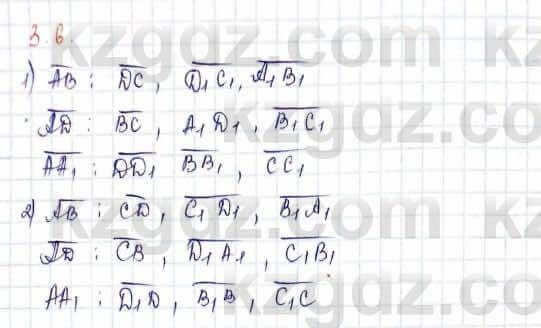 3.6.
1) A̅B̅ : D̅C̅, D̅₁C̅₁, A̅₁B̅₁
A̅D̅ : B̅C̅, A₁D₁, B̅₁C̅₁
A̅A̅₁ : D̅D̅₁ B̅B̅₁, C̅C̅₁
2) A̅B̅ : C̅D̅, C̅₁D̅₁, B̅₁A̅₁
A̅D̅ : C̅B̅, D̅₁A̅₁, C̅₁B̅₁
AA₁ : D̅₁D̅, B̅₁B̅, C̅₁C̅
kzgdz.com